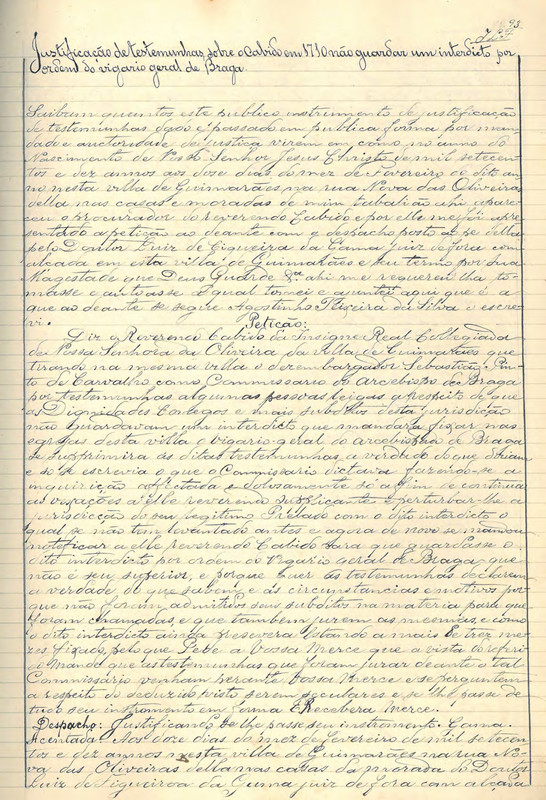 Justificação de testemunhas, sobre o Cabido em 1710 não guardar um interdicto por
ordem do vigario geral de Braga.
Saibam quantos este publico instrumento de justificação
de testemunhas dado e passado em publica forma por man
dado e auctoridade de justiça virem em como no anno do
Nascimento de Nosso Senhor Jesus Christo de mil setecen
tos e dez annos aos dose dias do mez de Fevereiro do dito an
no nesta villa de Guimarães na rua Nova das Oliveiras
della nas casas e moradas de mim tabalião ahi appare
ceu o procurador do reverendo Cabido e por elle me foi apre
sentado a petição ao deante com o despacho posto ao pé della
pelo Doutor Luiz de Figueira da Gama Juiz de fora com
alçada em esta villa de Guimarães e seu termo por Sua
Magestade que Deus Guarde &ª ahi me requereu lha to
masse e autoasse a qual tomei e a juntei aqui que é a
que ao deante se segue Agostinho Teixeira da Silva o escre
vi.
Petição:
Diz o Reverendo Cabido da Insigne e Real Collegiada
de Nossa Senhora da Oliveira da villa de Guimarães que
tirando na mesma villa o desembargador Sebastião Pin
to de Carvalho como Commissario do arcebispo de Braga
por testemunhas algumas pessoas leigas a respeito de que
as Dignidades Conegos e mais subditos desta jurisdição
não guardavam um interdicto que mandara fixar nas
egrejas desta villa o vigario geral do arcebispo de Braga
se supprimira ás ditas testemunhas a verdade do que diziam
e só se escrevia o que o Commissario dictava fazendo-se a
inquirição affectada e dolosamente só a fim de continua
as vexações a elle reverendo supplicante e perturbar-lhe a
jurisdicção do seu legitimo Prelado com o dito interdicto o
qual se não tem levantado antes agora de novo se mandou
notificar a elle reverendo Cabido para que guardasse o
dito interdicto por ordem do Vigario Geral de Braga que
não é seu superior, e porque quer as testemunhas declarem
a verdade do que sabem e as circunstancias e motivos por
que não foram admitidos seus subditos na materia para que
foram chamadas, e que tambem jurem as mesmas, e como
o dito interdicto ainda persevera estando a mais de trez me
zes fixado, pelo que Pede a Vossa Merce que a vista do referi
do Mande que as testemunhas que foram jurar deante o tal
Commissario venham perante Vossa Merce e se perguntem
a respeito do deduzido visto serem seculares e se lhe passe de
tudo seu instromento em forma E Recebera Merce.
Despacho: Justificando se lhe passe seu instromento. Gama.
Acentada: Aos doze dias do mez de Fevereiro de mil setecen
tos e dez annos nesta villa de Guimarães na rua No
va das Oliveiras della nas cazas da morada do Doutor
Luiz de Figueiroa da Gama juiz de fora com alçada